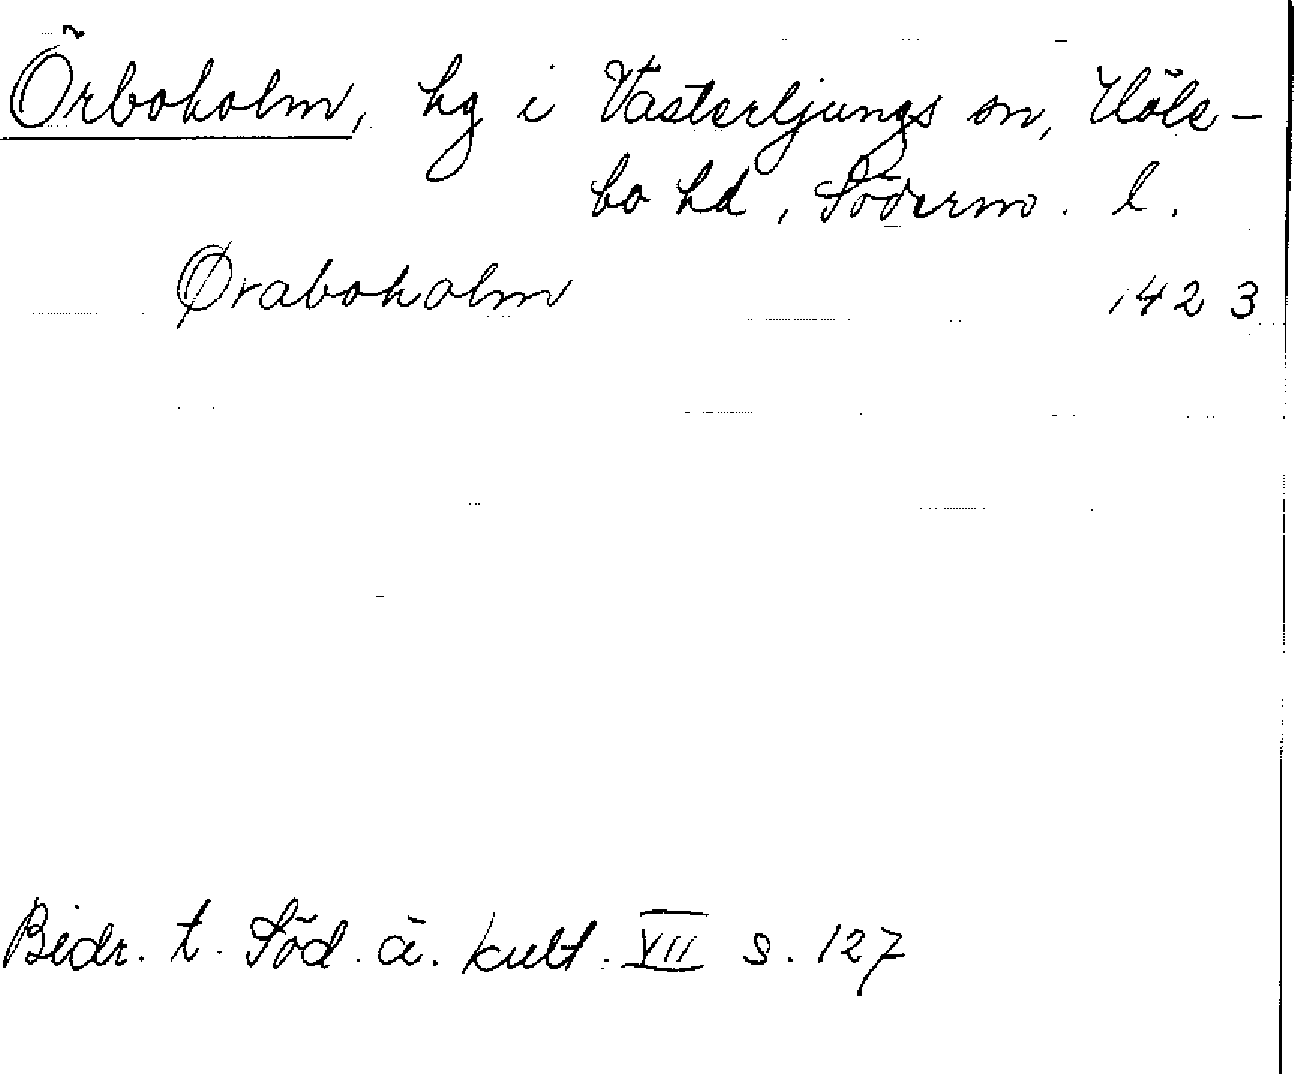 Örboholm, hg i Västerljungs sn, Höle-
bo hd, Söderm. l.
Øraboholm 1423
Bidr. t. Söd. ä. kult. VII s. 127